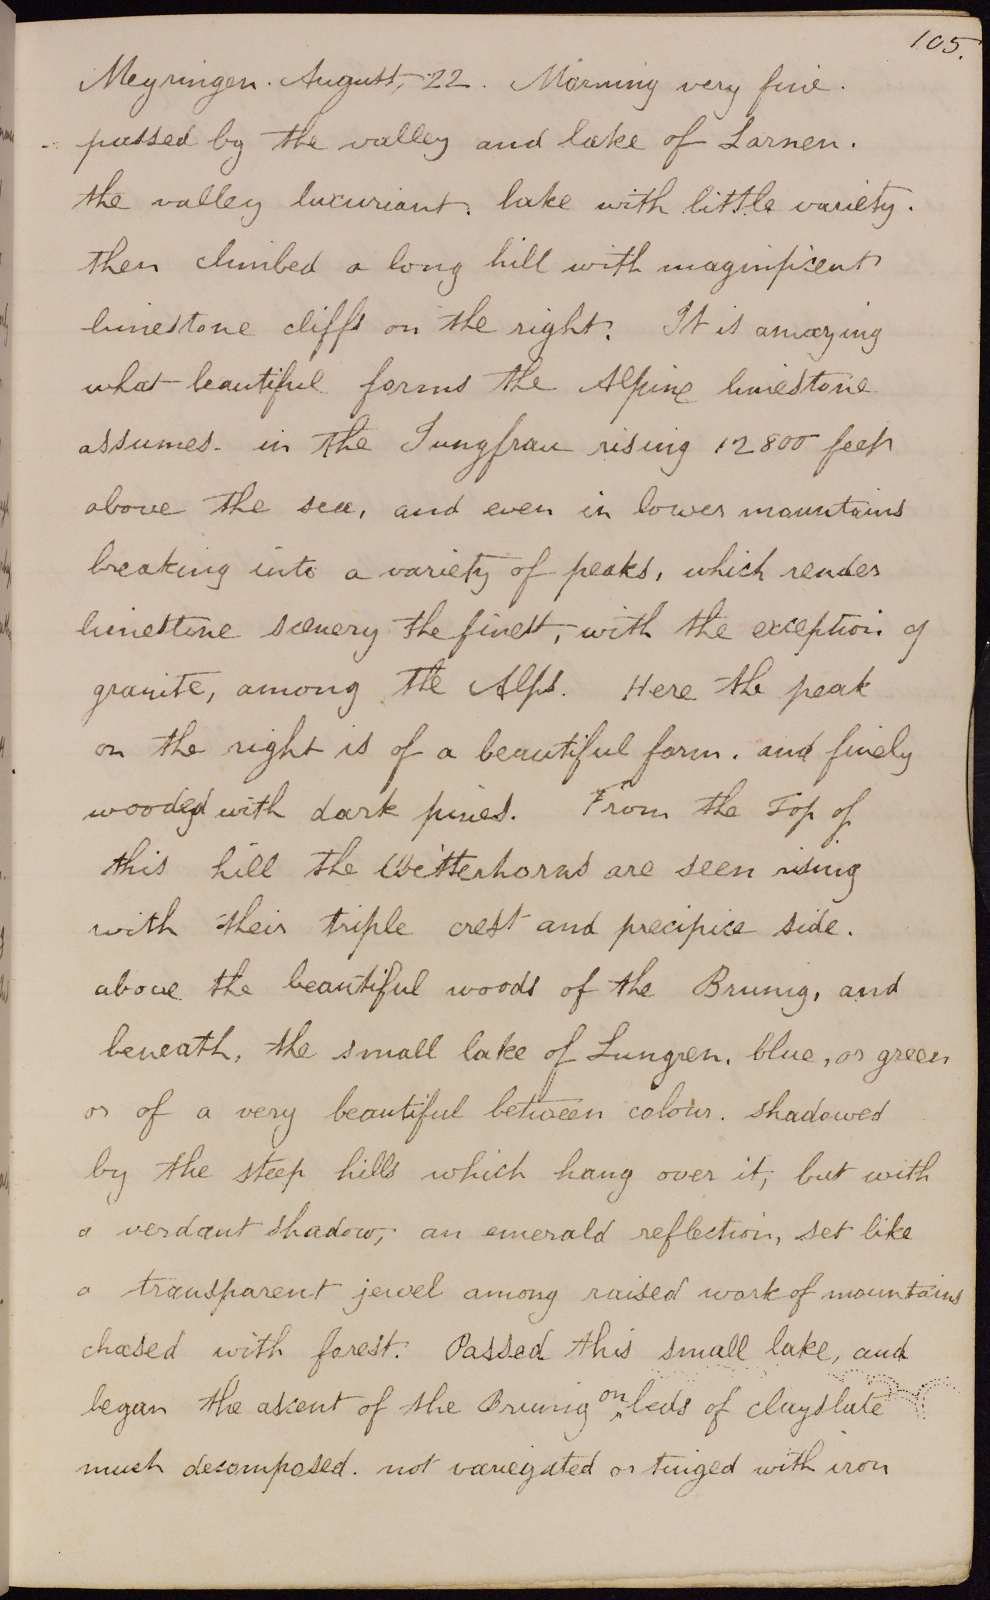 105.
Meyringen. August, 22. Morning very fine.
passed by the valley and lake of Sarnen.
the valley luxuriant. lake with little variety.
then climbed a long hill with magnificent
limestone cliffs on the right. It is amazing
what beautiful forms the Alpine limestone
assumes. in the Jungfrau rising 12800 feet
above the sea, and even in lower mountains
breaking into a variety of peaks, which render
limestone scenery the finest, with the exception of
granite, among the Alps. Here the peak
on the right is of a beautiful form. and finely
wooded with dark pines. From the Top of
this hill the Wetterhorns are seen rising
with their triple crest and precipice side.
above the beautiful woods of the Brunig, and
beneath, the small lake of Lungren. blue, or green
or of a very beautiful between colour. shadowed
by the steep hills which hang over it, but with
a verdant shadow, an emerald reflection, set like
a transparent jewel among raised work of mountains
chased with forest. Passed this small lake, and
began the ascent of the Brunig on beds of clayslate
much decomposed. not variegated or tinged with iron